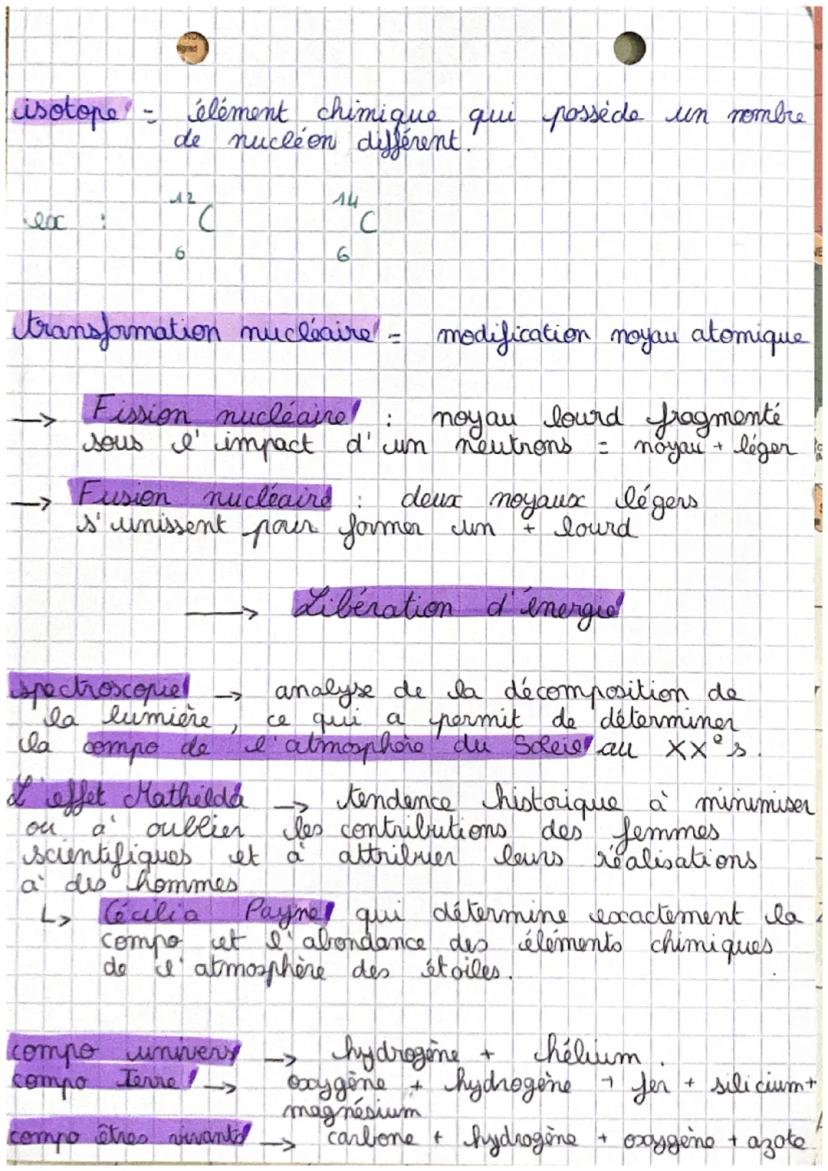 isotope = élément chimique qui posséde un nombre
de nucléon différent.
ex : ¹²C ¹⁴C
6 6
transformation nucléaire = modification noyau atomique
→ Fission nucléaire : noyau lourd fragmenté
sous l'impact d'un neutrons = noyau + léger
→ Fusion nucléaire : deux noyaux légers
s'unissent pour former un + lourd
→ Libération d'énergie
spectroscopie → analyse de la décomposition de
la lumière, ce qui a permit de déterminer
la compo de l'atmosphère du Soleil au XXᵉ s.
L'effet Mathilda → tendence historique à minimiser
ou à oublier les contributions des femmes
scientifiques et à attribuer leurs réalisations
à des hommes
↳ Cécilia Payne qui détermine exactement la
compo et l'abondance des éléments chimiques
de l'atmosphère des étoiles.
compo univers → hydrogène + hélium.
compo Terre → oxygène + hydrogène + fer + silicium +
magnésium
compo êtres vivants → carbone + hydrogène + oxygène + azote